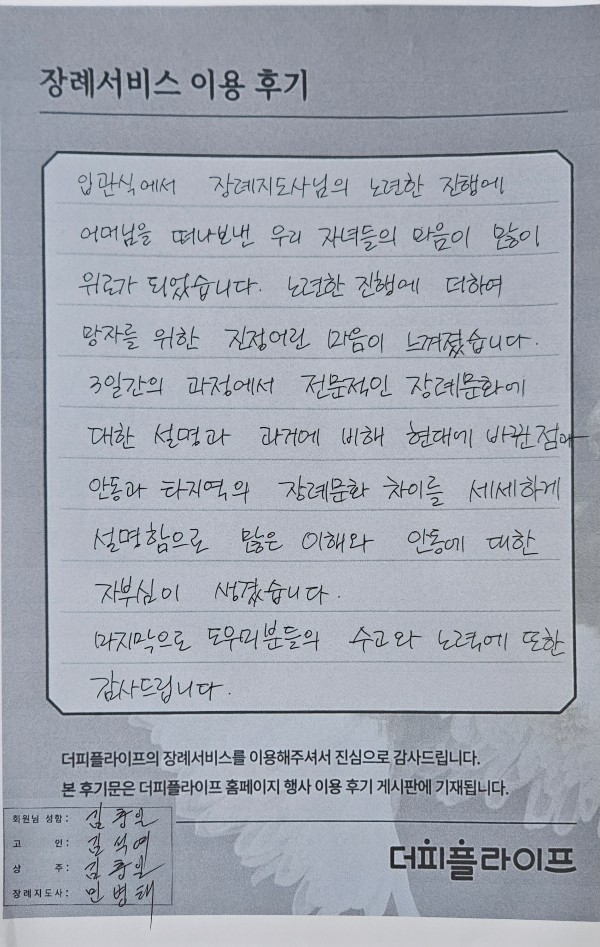 장례서비스 이용 후기
입관식에서 장례지도사님의 노련한 진행에
어머님을 떠나보낸 우리 자녀들의 마음이 많이
위로가 되었습니다. 노련한 진행에 더하여
망자를 위한 진정어린 마음이 느껴졌습니다.
3일간의 과정에서 전문적인 장례문화에
대한 설명과 과거에 비해 현대에 바뀐점과
안동과 타지역의 장례문화 차이를 세세하게
설명함으로 많은 이해와 안동에 대한
자부심이 생겼습니다.
마지막으로 도우미분들의 수고와 노력에 또한
감사드립니다.
더피플라이프의 장례서비스를 이용해주셔서 진심으로 감사드립니다.
본 후기문은 더피플라이프 홈페이지 행사 이용 후기 게시판에 기재됩니다.
회원님 성함:
고 인: 김석예
상 주:
장례지도사: 민병태
더피플라이프